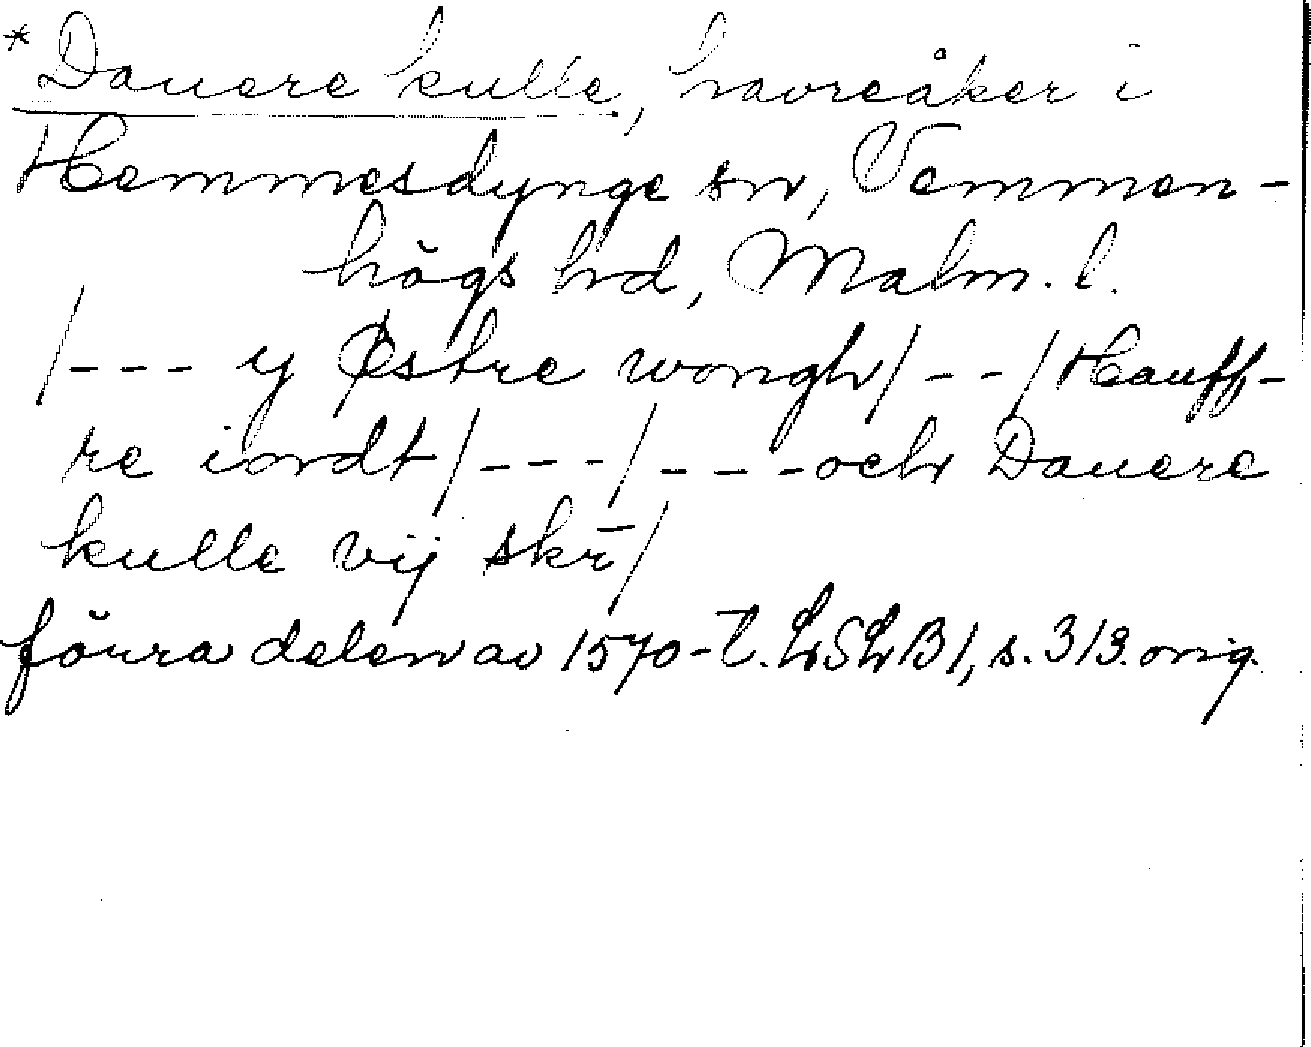 * Dauere kulle, havreåker i
Hemmesdynge sn, Vemmen-
högs hd, Malm. l.
/--- y Østre wongh/--/Hauff-
re iordt/---/---och Dauere
kulle vij skr̄/
förra delen av 1570-t. LSLB1, s. 313. orig.